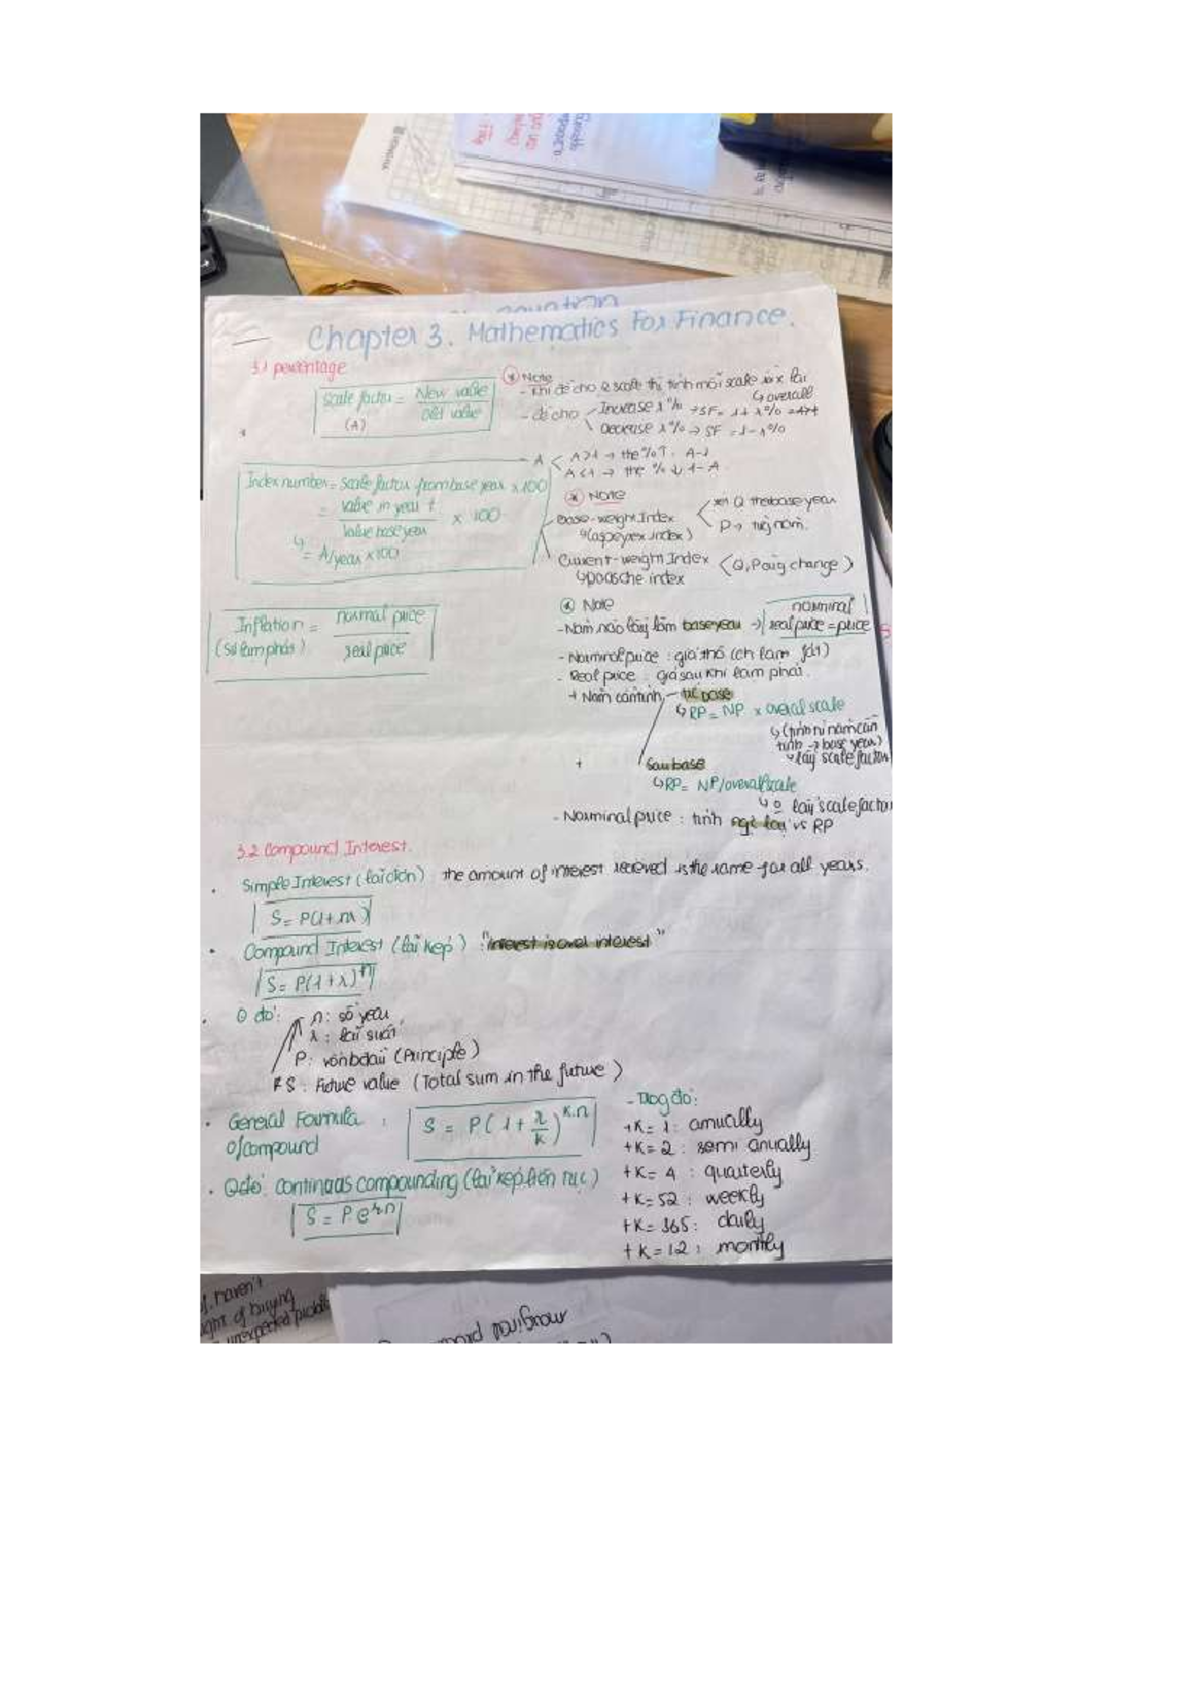 Chapter 3. Mathematics For Finance.
3.1 percentage
Scale factor = New value / Old value
(A)
* Note
- Khi đề cho 2 scale thì tính mỗi scale rồi x lại
↳ overall
- đề cho Increase r% → SF = 1 + r%
decrease r% → SF = 1 - r%
A
A>1 → the % ↑ A-1
A<1 → the % ↓ 1-A
Index number = Scale factor from base year x 100
= Value in year t / Value base year x 100
↳ = A/year x 100
* Note
base-weight Index
(laspeyer index)
Q the base year
P → từng năm.
Current-weight Index (Q, P cùng change)
↳ paasche index
Inflation = normal price / real price
(Sự lạm phát)
* Note
- Năm nào lấy làm base year → real price = nominal price
- Nominal price : giá thô (ch lạm fát)
- Real price : giá sau khi lạm phát.
+ Năm cần tính
base
↳ RP = NP x overal scale
↳ (tính từ năm cần
tính → base year)
↳ lấy scale factor
+ Sau base
↳ RP = NP/overal scale
↳ lấy scale factor
- Norminal price : tính ngc lại vs RP
3.2 Compound Interest.
. Simple Interest (lãi đơn) the amount of interest recieved is the same for all years.
S = P(1+nr)
. Compound Interest (lãi kép) : "Interest is over interest"
S = P(1+r)^n
. Ở đó: n: số year
r : lãi suất
P: vốn bđầu (Principle)
S : Future value (Total sum in the future)
. General Formula :
of compound
S = P(1 + r/k)^k.n
- Trog đó:
+ K = 1 : anually
+ K = 2 : semi anually
+ K = 4 : quaterly
+ K = 52 : weekly
+ K = 365 : daily
+ K = 12 : monthly
continuos compounding (lãi kép liên tục)
S = P e^rn
haven't
of buying
unexpected